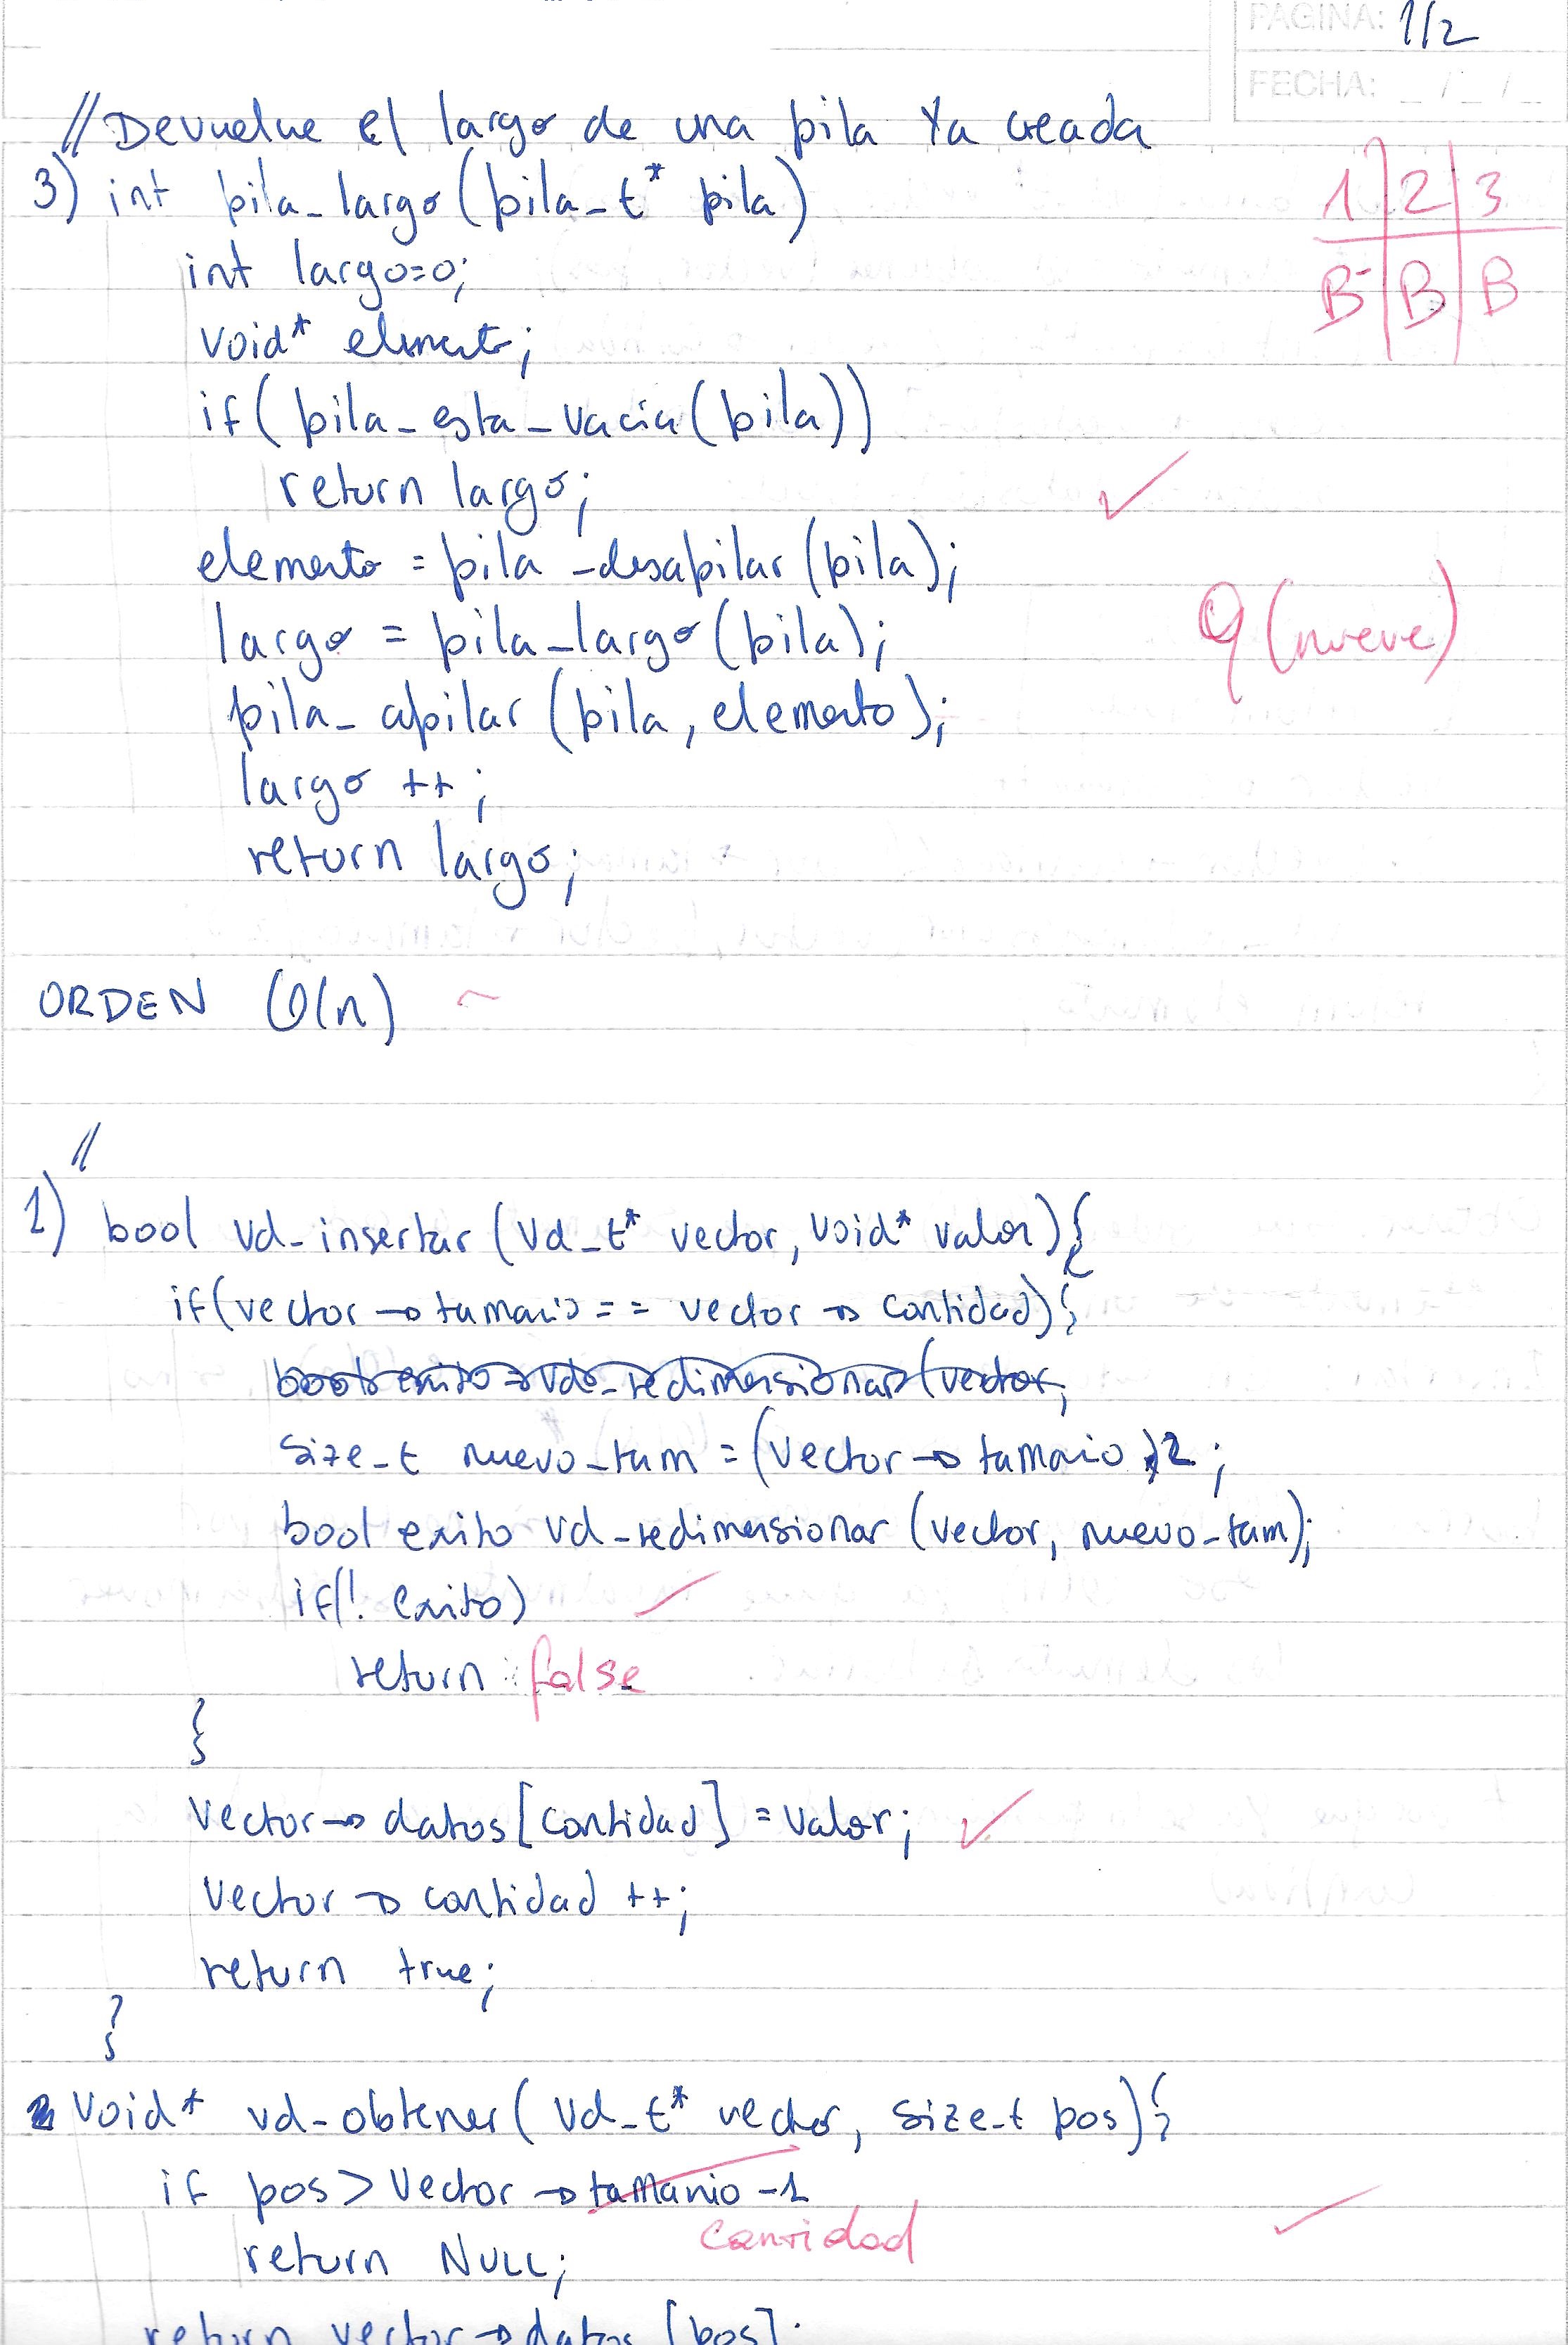 PAGINA: 1/2
FECHA: _ / _ / _
// Devuelve el largo de una pila ya creada
1 | 2 | 3
B- | B | B
3) int pila_largo(pila_t* pila)
int largo=0;
void* elemento;
if(pila_esta_vacia(pila))
return largo;
elemento = pila_desapilar(pila);
largo = pila_largo(pila);
9 (nueve)
pila_apilar(pila, elemento);
largo ++;
return largo;
ORDEN O(n)
//
1) bool vd_insertar(vd_t* vector, void* valor){
if(vector → tamanio == vector → cantidad){
bool exito = vd_redimensionar(vector,
size_t nuevo_tam = (vector → tamanio)2;
bool exito vd_redimensionar(vector, nuevo_tam);
if(! exito)
return false
}
vector → datos[cantidad] = valor;
vector → cantidad ++;
return true;
}
void* vd_obtener(vd_t* vector, size_t pos){
if pos > vector → tamanio -1
cantidad
return NULL;
return vector → datos [pos];